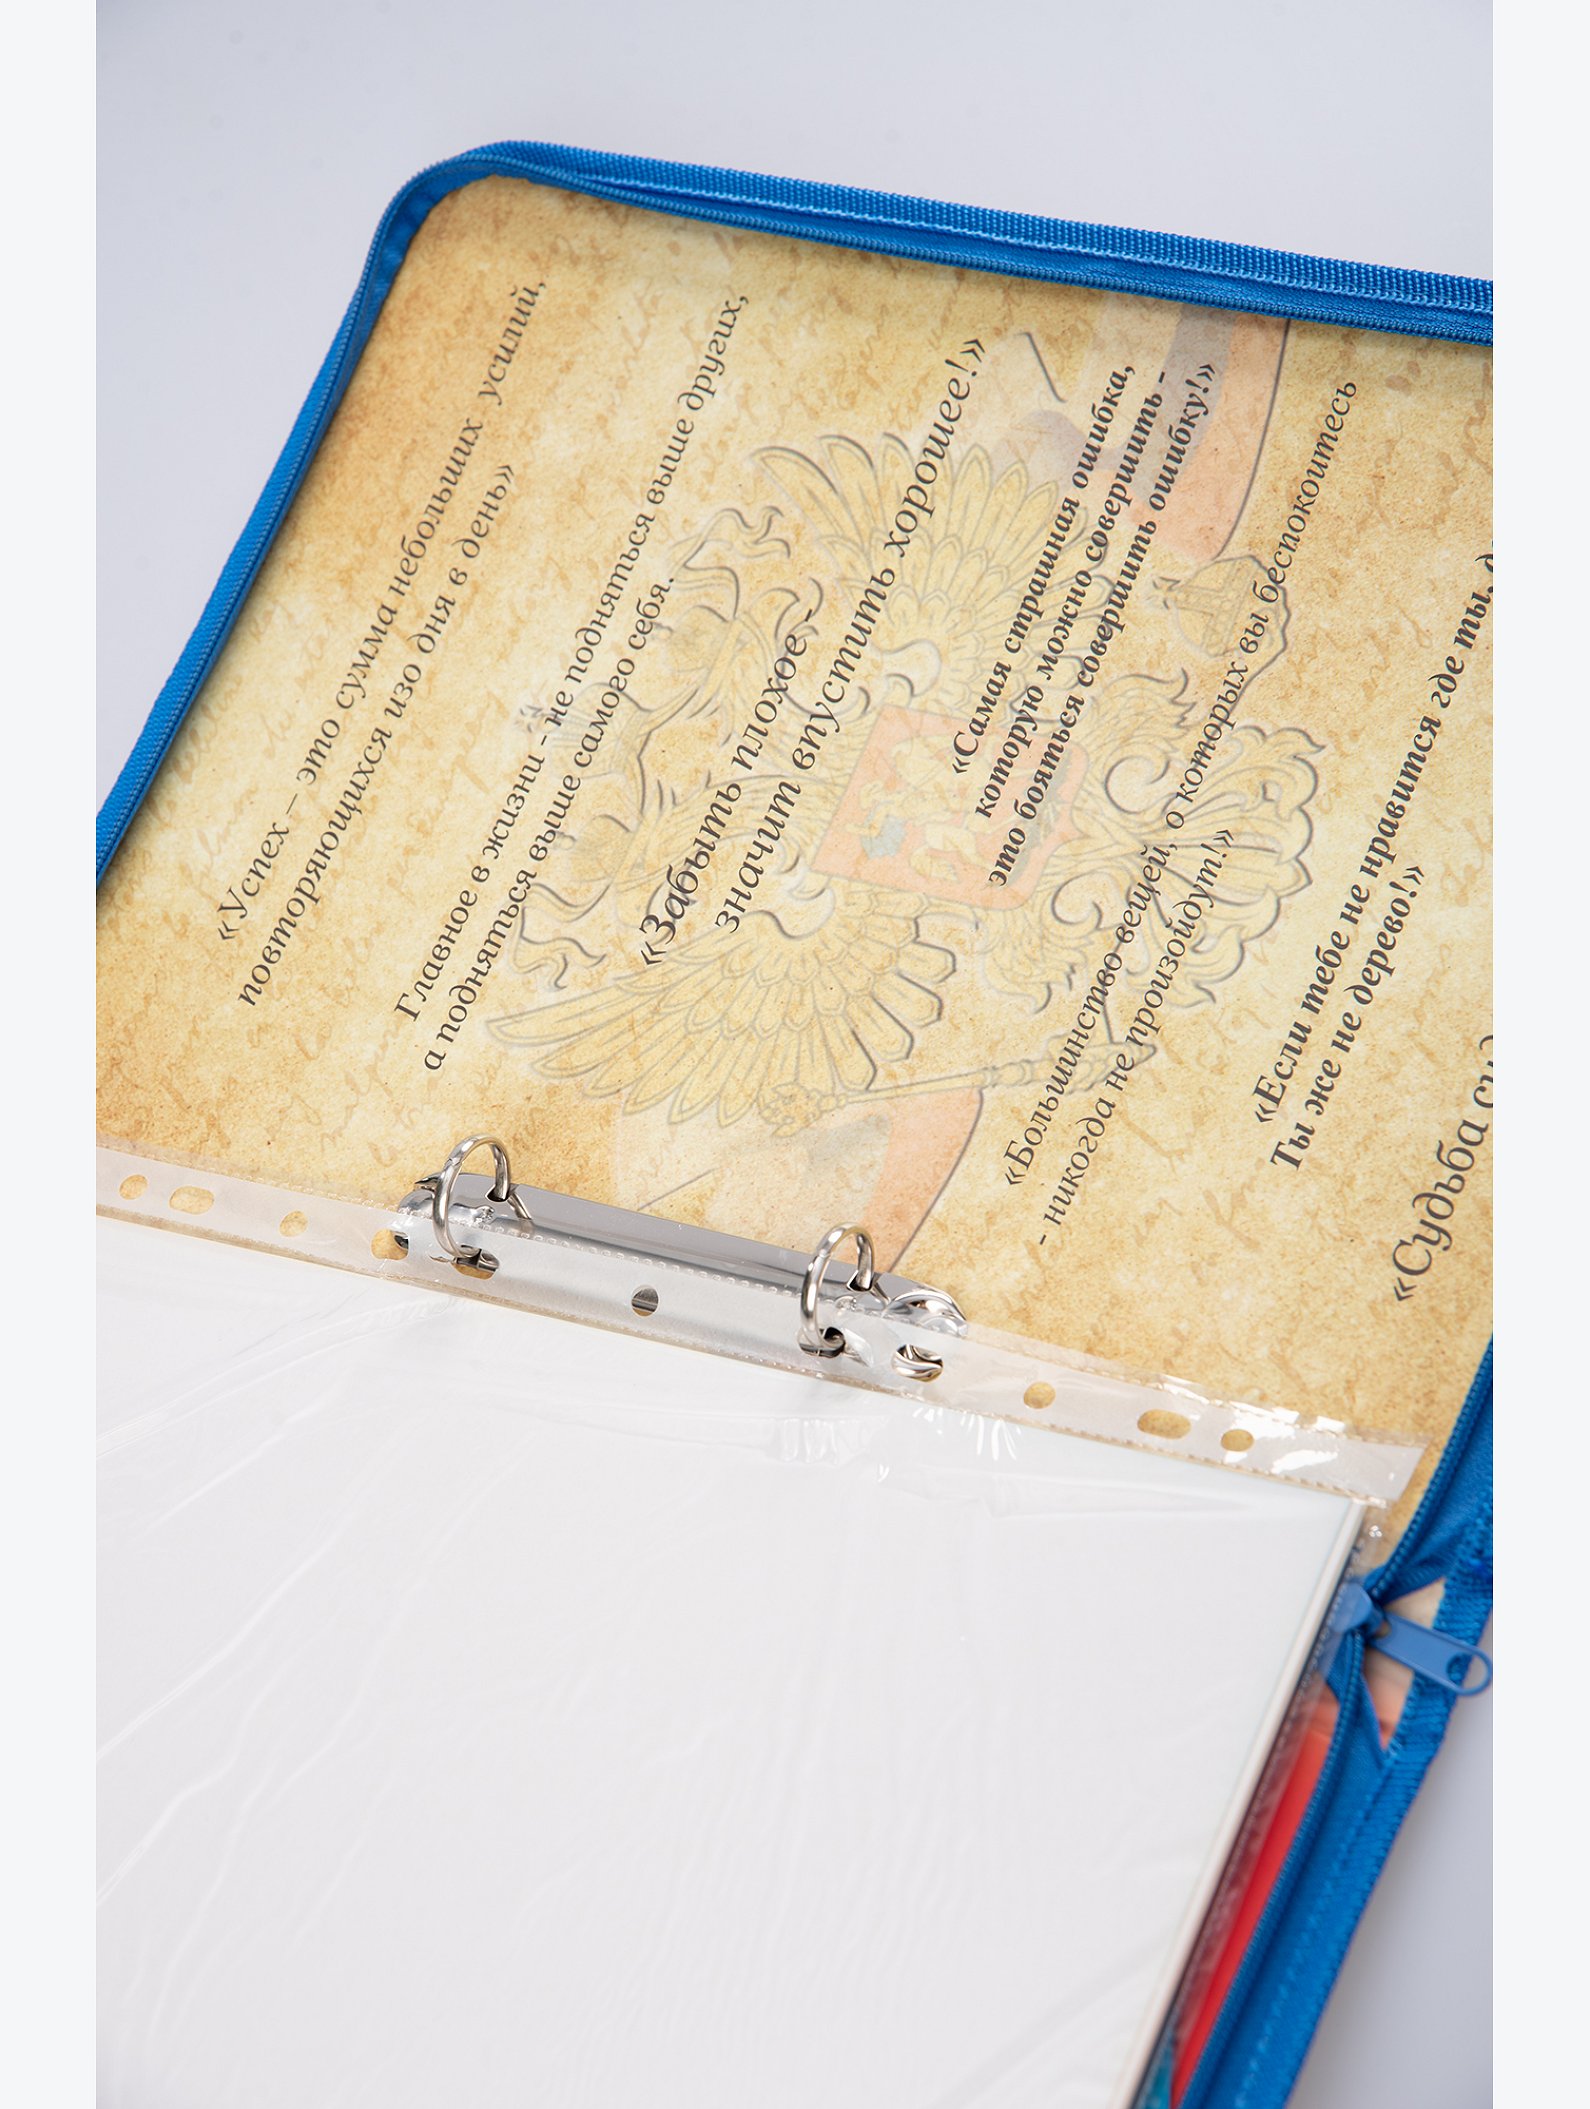 «Успех – это сумма небольших усилий,
повторяющихся изо дня в день»
Главное в жизни - не подняться выше других,
а подняться выше самого себя.
«Забыть плохое -
значит впустить хорошее!»
«Самая страшная ошибка,
которую можно совершить -
это бояться совершить ошибку!»
«Большинство вещей, о которых вы беспокоитесь
- никогда не произойдут!»
«Если тебе не нравится где ты,
Ты же не дерево!»
«Судьба